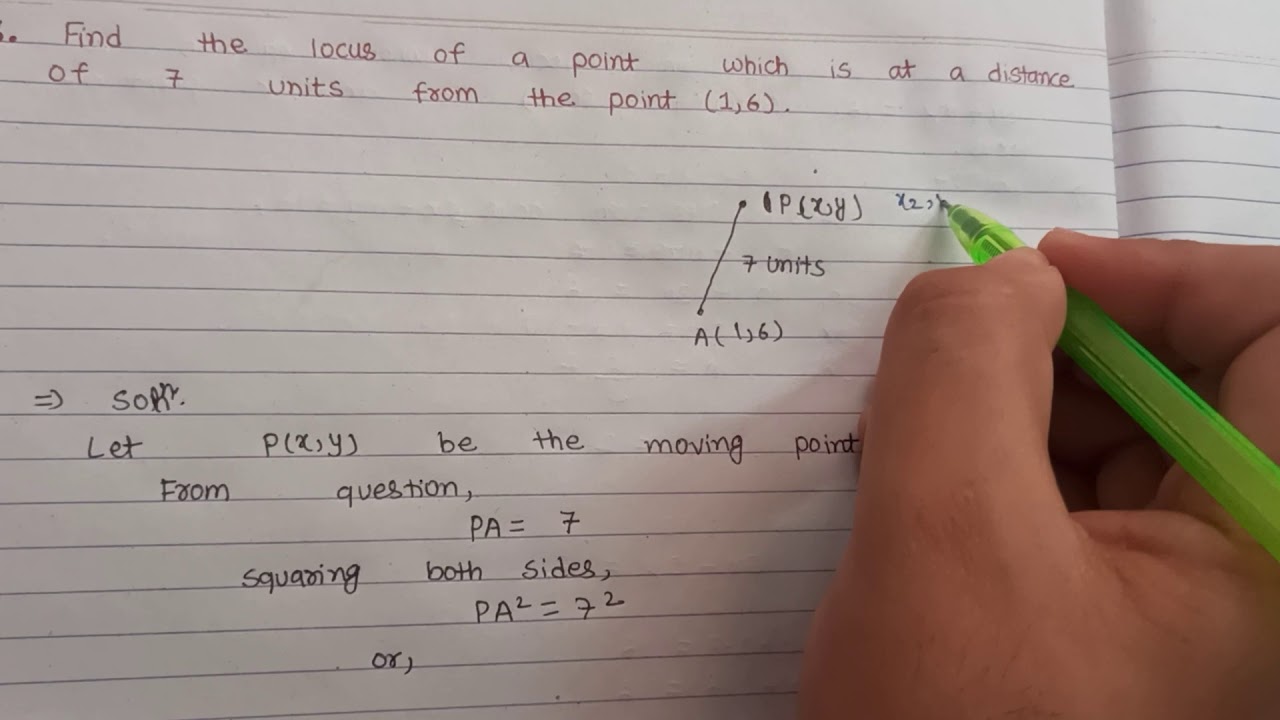 3. Find the locus of a point which is at a distance
of 7 units from the point (1,6).
P(x,y) x2,
7 units
A(1,6)
=>
Let P(x,y) be the moving point
From question,
PA = 7
squaring both sides,
PA² = 7²
or,